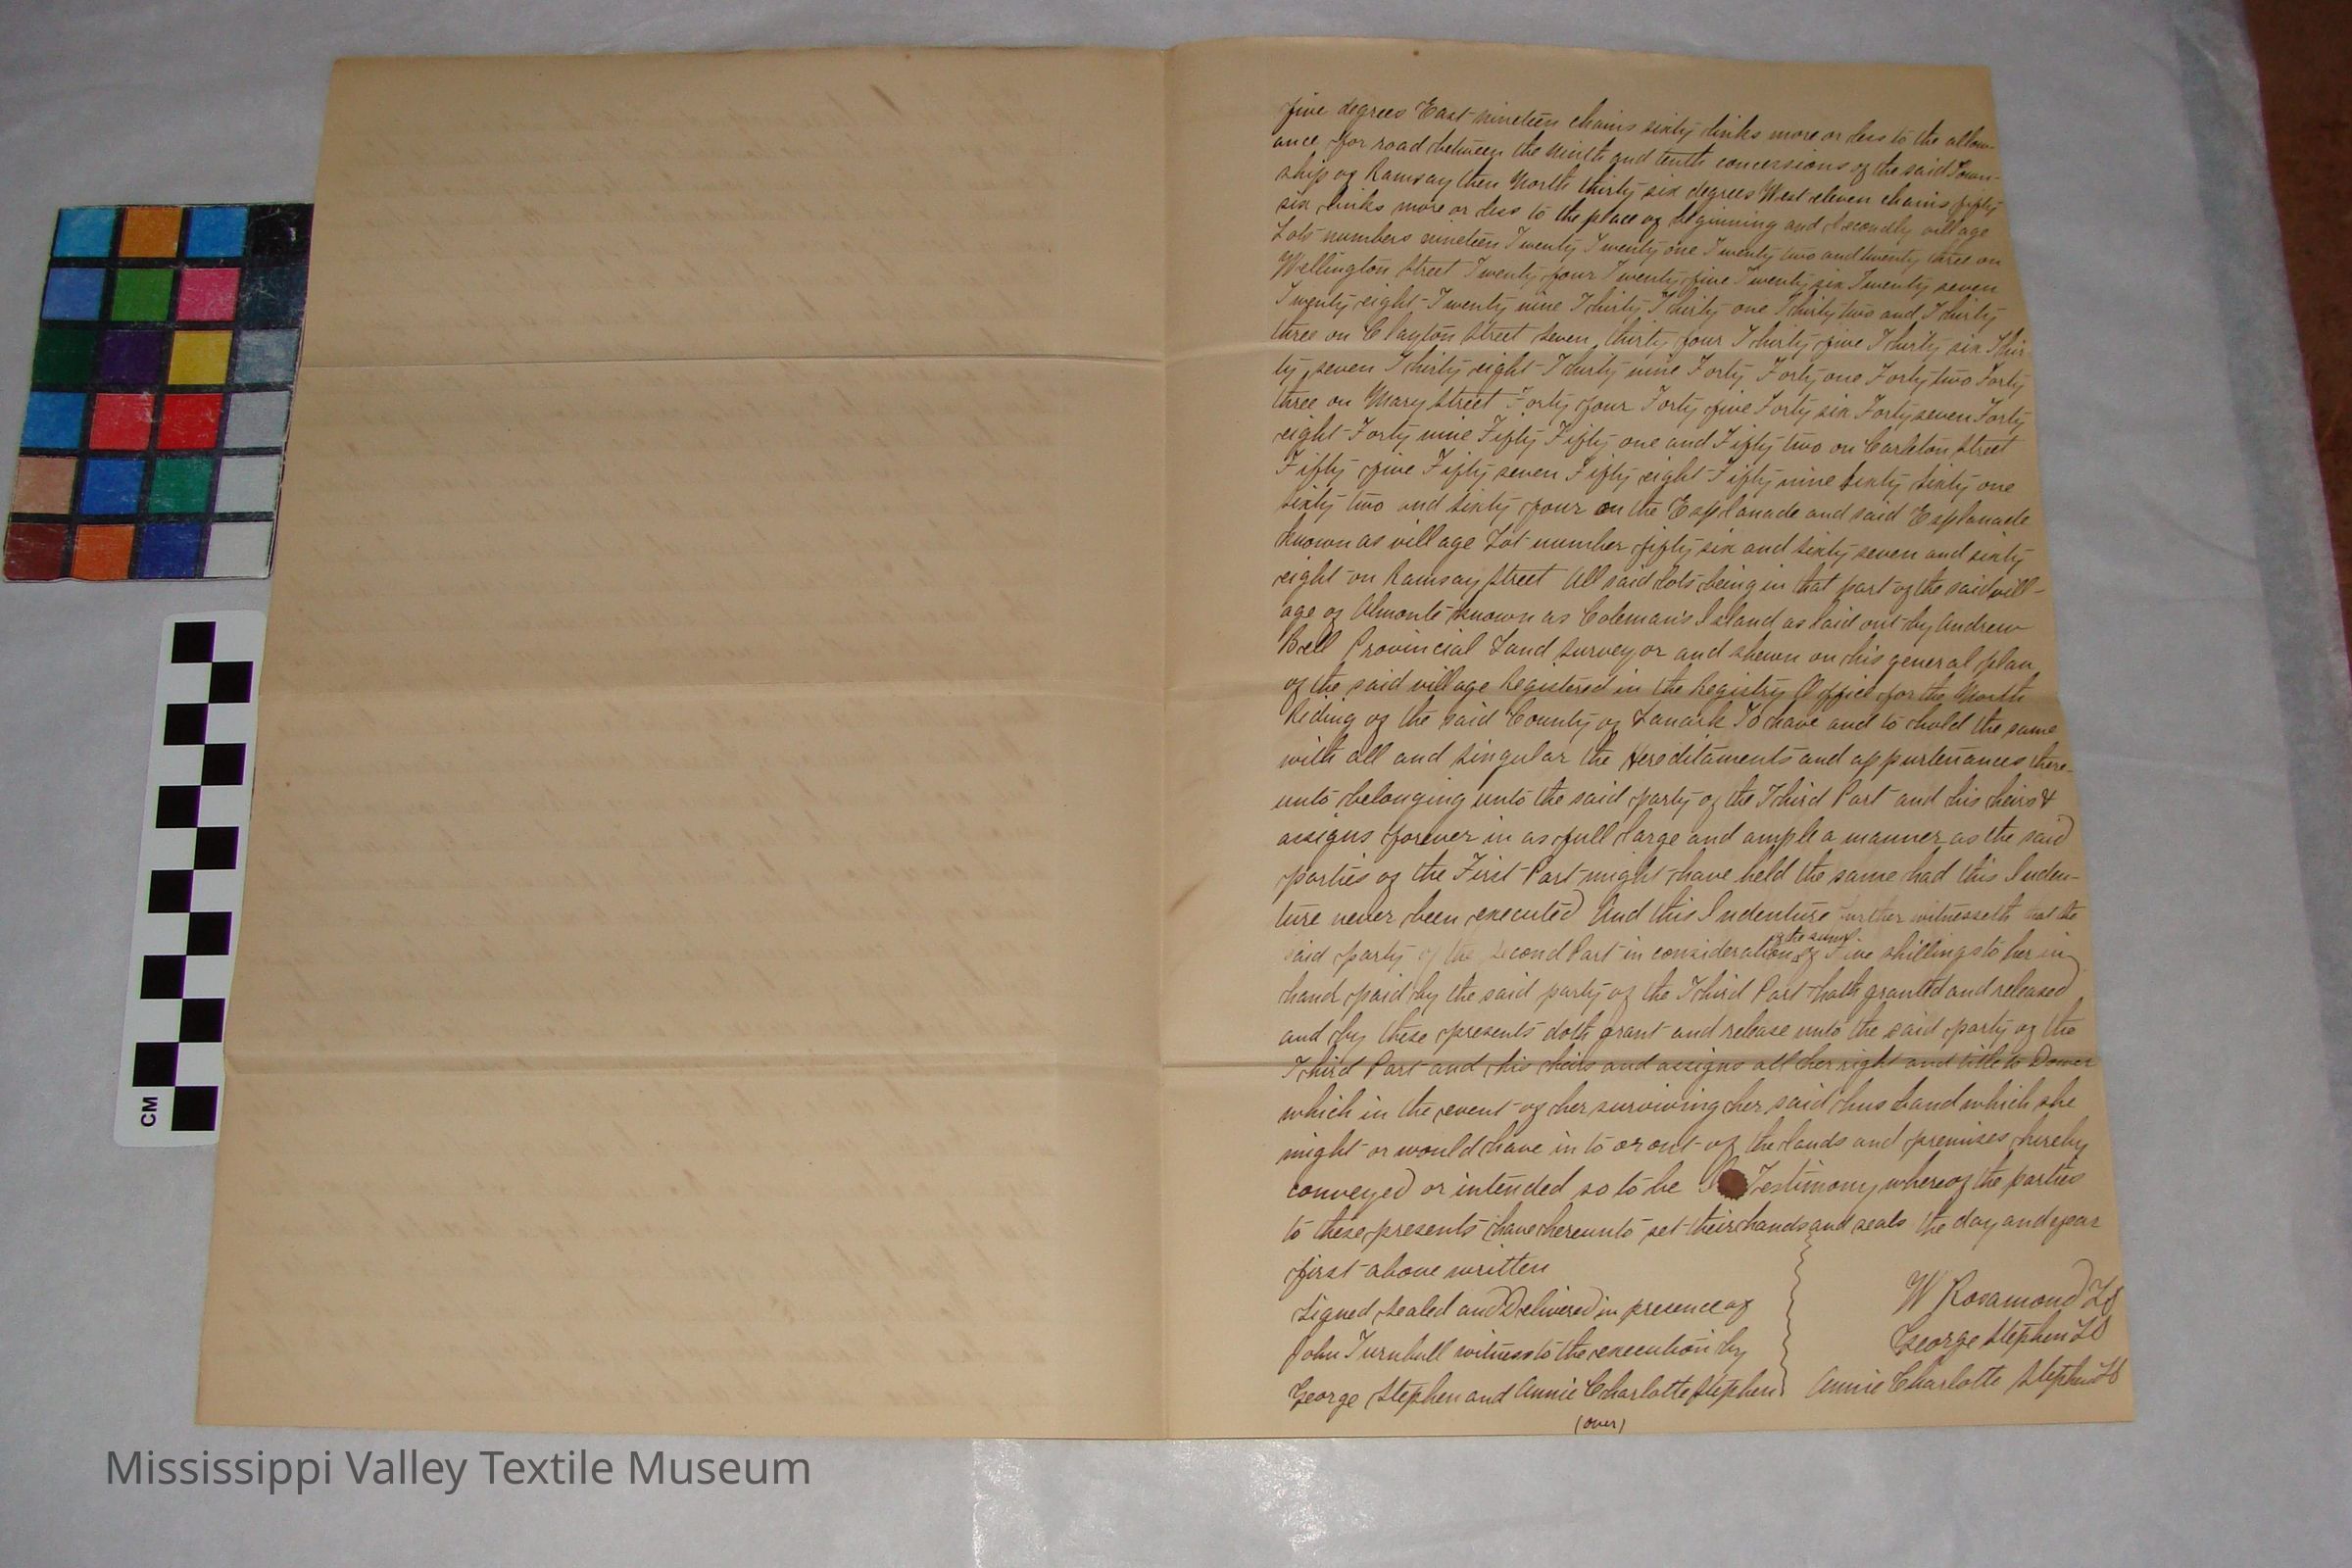 five degrees East nineteen chains sixty links more or less to the allow-
ance for road between the ninth and tenth concessions of the said Town-
ship of Ramsay then North thirty six degrees West eleven chains fifty
six links more or less to the place of beginning and secondly village
Lots numbers nineteen Twenty Twenty one Twenty two and twenty three on
Wellington Street Twenty four Twenty five Twenty six Twenty seven
Twenty eight Twenty nine Thirty Thirty one Thirty two and Thirty
three on Clayton Street seven thirty four Thirty five Thirty six Thir-
ty seven Thirty eight Thirty nine Forty Forty one Forty two Forty
three on Mary Street Forty four Forty five Forty six Forty seven Forty
eight Forty nine Fifty Fifty one and Fifty two on Carleton Street
Fifty five Fifty seven Fifty eight Fifty nine Sixty Sixty one
Sixty two and Sixty four on the Esplanade and said Esplanade
known as village Lot number fifty six and sixty seven and sixty
eight on Ramsay Street All said lots being in that part of the said vill-
age of Almonte known as Coleman's Island as laid out by Andrew
Bell Provincial Land Surveyor and shewn on his general plan
of the said village Registered in the Registry Office for the North
Riding of the said County of Lanark To have and to hold the same
with all and singular the Hereditaments and appurtenances there-
unto belonging unto the said party of the Third Part and his heirs &
assigns forever in as full large and ample a manner as the said
parties of the First Part might have held the same had this Inden-
ture never been executed And this Indenture further witnesseth that the
said party of the Second Part in consideration of the sum of Five shillings to her in
hand paid by the said party of the Third Part hath granted and released
and by these presents doth grant and release unto the said party of the
Third Part and his heirs and assigns all her right and title to Dower
which in the event of her surviving her said husband which she
might or would have in to or out of the lands and premises hereby
conveyed or intended so to be Testimony whereof the parties
to these presents have hereunto set their hands and seals the day and year
first above written
Signed Sealed and Delivered in presence of
John Turnbull witness to the execution by
George Stephen and Annie Charlotte Stephen
W Rosamond LS
George Stephen LS
Annie Charlotte Stephen LS
(over)
CM
Mississippi Valley Textile Museum